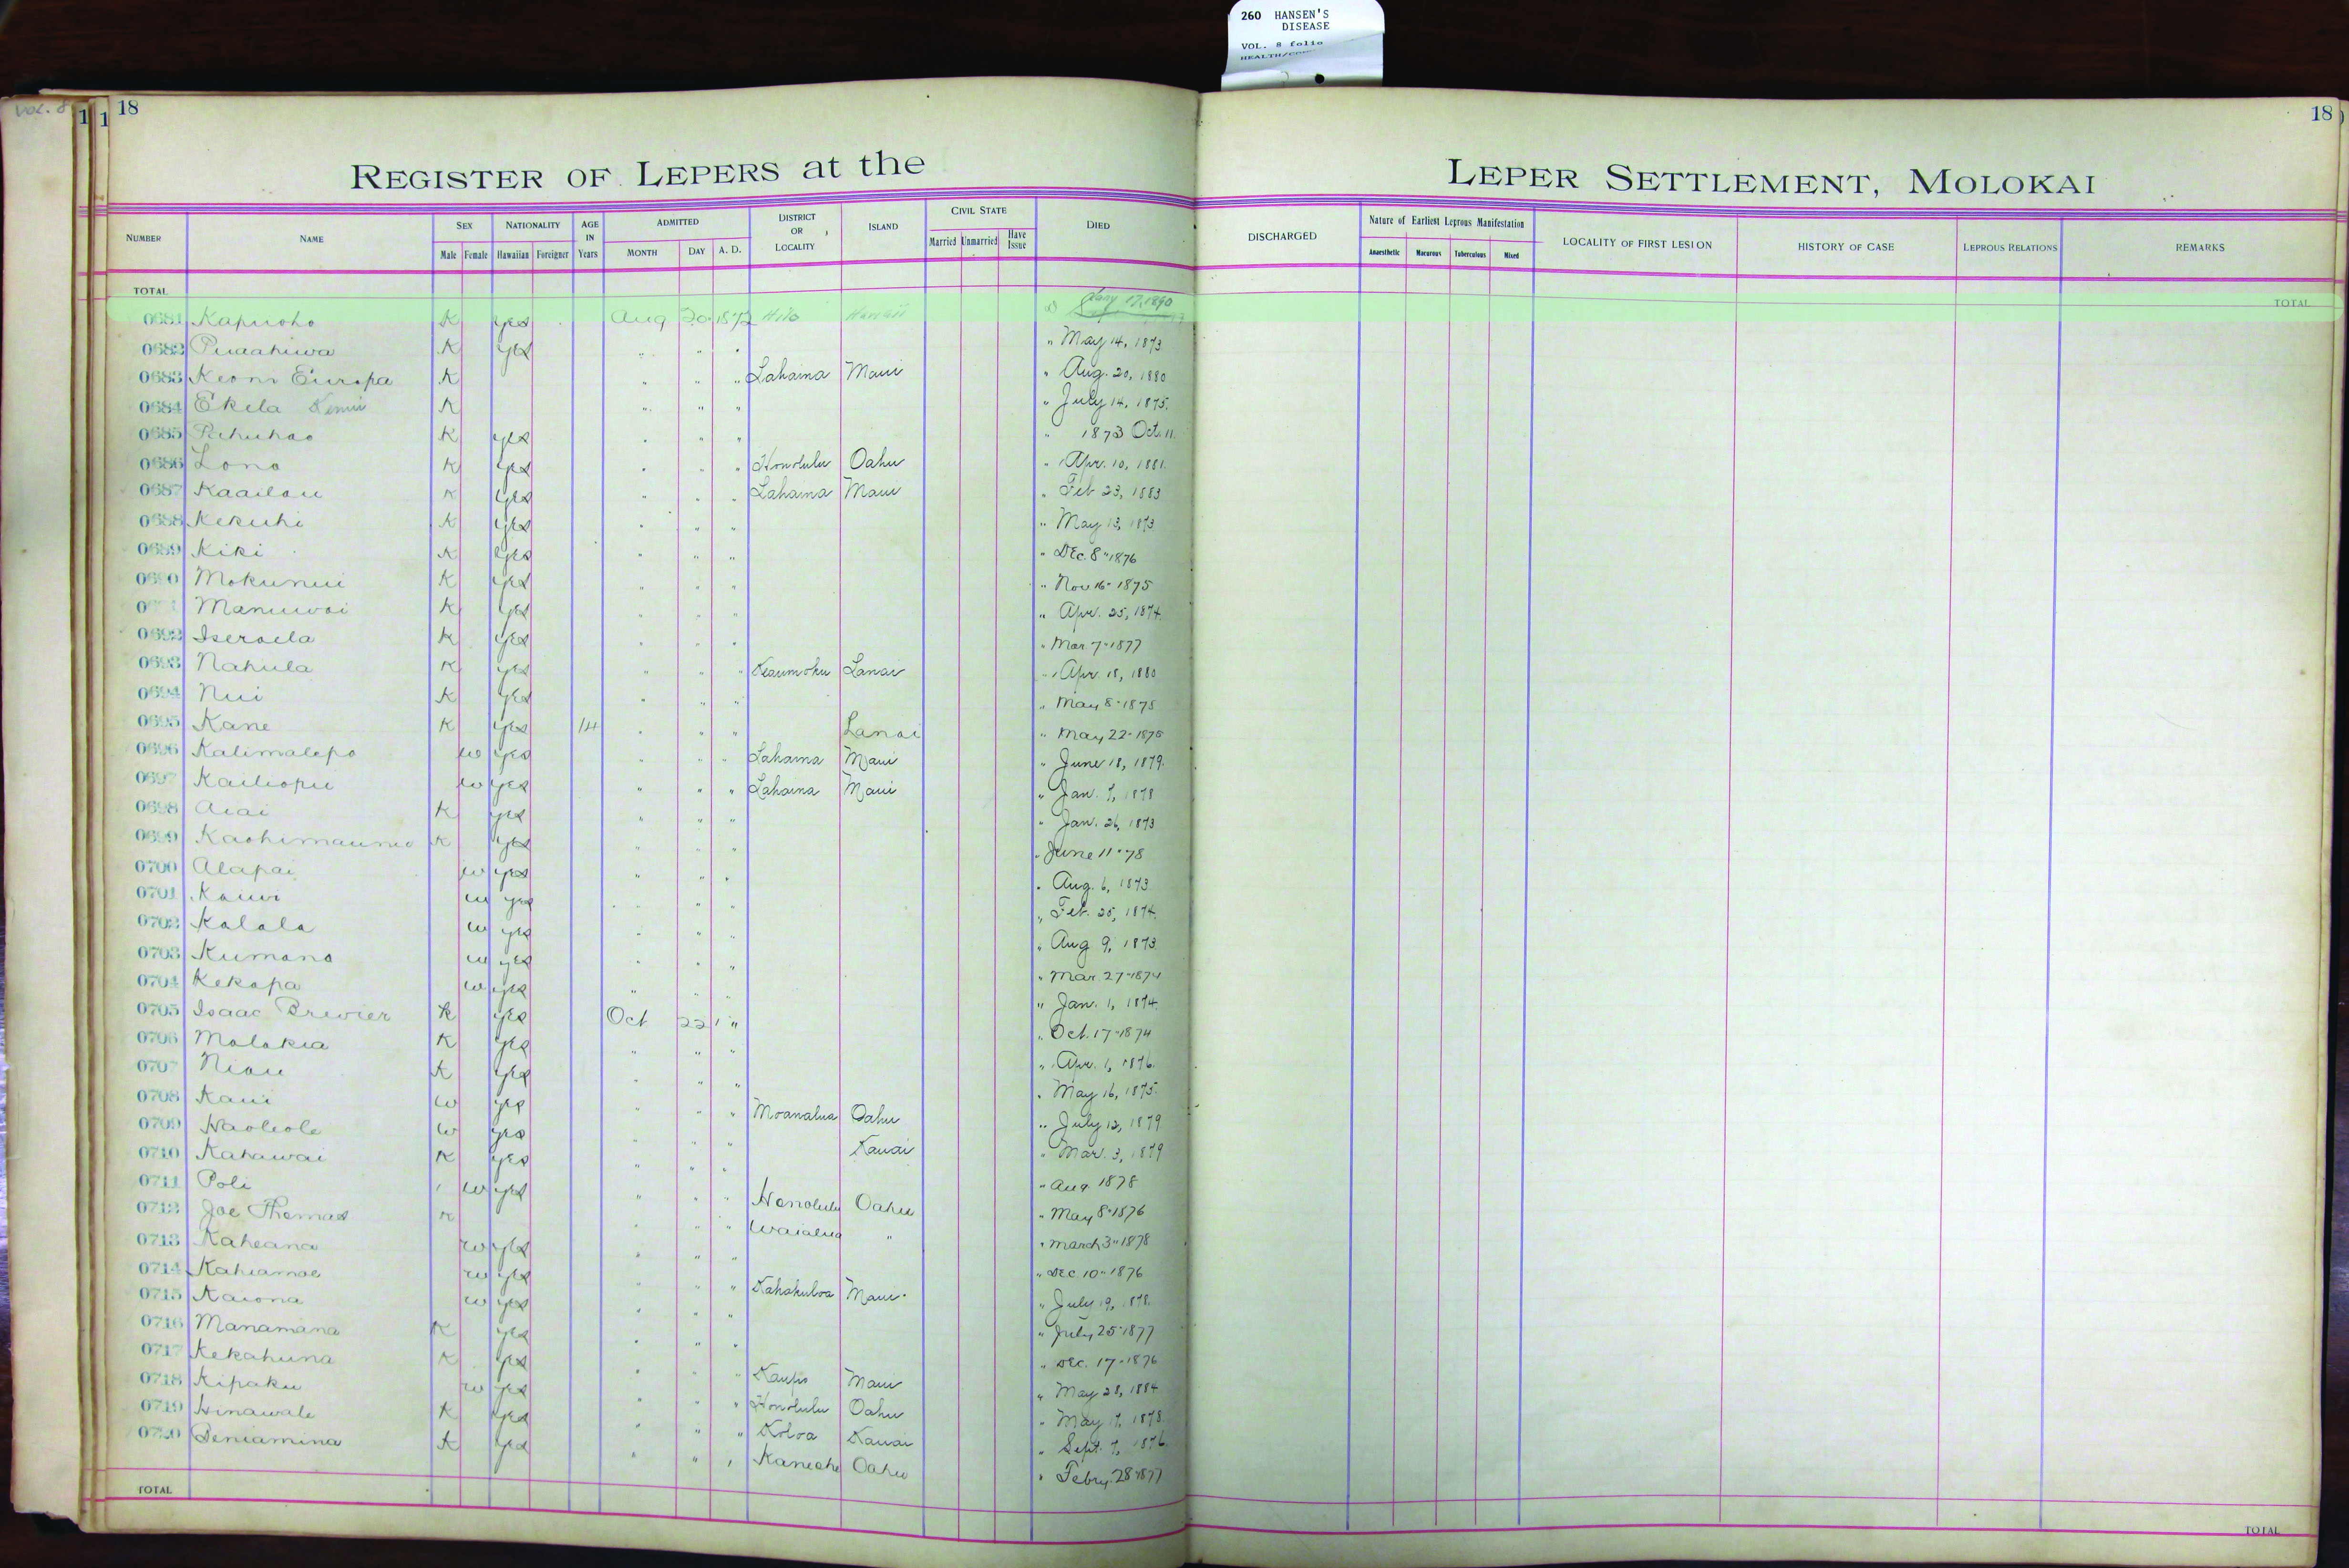 260 HANSEN'S
DISEASE
VOL. 8 folio
VOL. 8
1 1 18
18
REGISTER OF LEPERS at the LEPER SETTLEMENT, MOLOKAI
NUMBER NAME SEX Male Female NATIONALITY Hawaiian Foreigner AGE IN Years ADMITTED MONTH DAY A. D. DISTRICT OR LOCALITY ISLAND CIVIL STATE Married Unmarried Have Issue DIED DISCHARGED Nature of Earliest Leprous Manifestation Anaesthetic Macurous Tuberculous Mixed LOCALITY OF FIRST LESION HISTORY OF CASE LEPROUS RELATIONS REMARKS
TOTAL TOTAL
0681 Kapuoho K yes Aug 20 1872 Hilo Hawaii D Jany 17, 1890
0682 Puaahiwa K yes " " " " May 14, 1873
0683 Keoni Europa K " " " Lahaina Maui " Aug. 20, 1880
0684 Ekela K " " " " July 14, 1875.
0685 Pahuhao K yes " " " " 1873 Oct. 11.
0686 Lono K yes " " " Honolulu Oahu " Apr. 10, 1881.
0687 Kaailau K yes " " " Lahaina Maui " Feb 23, 1883
0688 Kekuhi K yes " " " " May 13, 1873
0689 Kiki K yes " " " " Dec. 8" 1876
0690 Mokunui K yes " " " " Nov 16- 1875
Manuwai K yes " " " " Apr. 25, 1874.
0692 Iseraela K yes " " " " Mar. 7" 1877
0693 Nahula K yes " " " Keaumoku Lanai " Apr. 18, 1880
0694 Nui K yes " " " " May 8" 1878
0695 Kane K yes 14 " " " Lanai " May 22- 1878
0696 Kalimalepo w yes " " " Lahaina Maui " June 18, 1879.
0697 Kailiopu w yes " " " Lahaina Maui " Jan. 7, 1878
0698 Aiai K yes " " " " Jan. 26, 1873
0699 K yes " " " " June 11" 78
0700 Alapai w yes " " " " Aug. 6, 1873
0701 Kauwi w yes " " " " Feb. 25, 1874.
0702 Kalala w yes " " " " Aug 9, 1873
0703 Kumano w yes " " " " Mar. 27" 1874
0704 Kekapa w yes " " " " Jan. 1, 1874.
0705 Isaac Brewier K yes Oct 22 " " Oct. 17" 1874
0706 Molokia K yes " " " " Apr. 1, 1876.
0707 Niau K yes " " " " May 16, 1875.
0708 Kaui w yes " " " Moanalua Oahu " July 12, 1879
0709 Haoleole w yes " " " Kauai " Mar. 3, 1879
0710 Kahawai K yes " " " " Aug 1878
0711 Poli w yes " " " Honolulu Oahu " May 8" 1876
0712 Joe Thomas K " " " Waialua " " March 3" 1878
0713 Kaheana w yes " " " " Dec. 10" 1876
0714 Kahiamoe w yes " " " Kahakuloa Maui " July 19, 1878.
0715 Kaiona w yes " " " " July 25" 1877
0716 Manamana K yes " " " " Dec. 17" 1876
0717 Kekahuna K yes " " " Kaupo Maui " May 28, 1884
0718 Kipaku w yes " " " Honolulu Oahu " May 17, 1878.
0719 Hinawale K yes " " " Koloa Kauai " Sept. 7, 1876.
0720 Beniamina K yes " " " Kaneohe Oahu " Febry. 28" 1877
TOTAL TOTAL